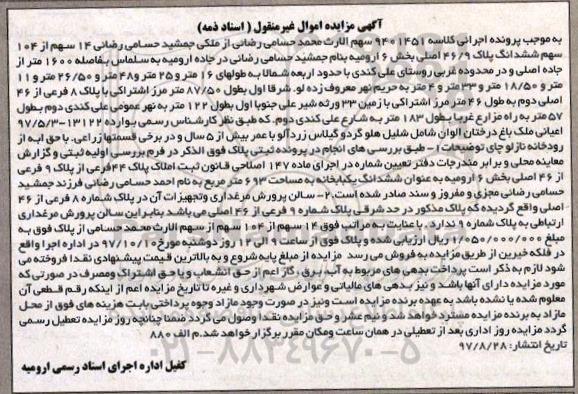 آگهی مزایده اموال غیرمنقول ( اسناد ذمه)
به موجب پرونده اجرائی کلاسه ۹۴۰۱۴۵۱ سهم الارث محمد حسامی رضائی از ملکی جمشید حسامی رضائی ۱۴ سهم از ۱۰۴
سهم ششدانگ پلاک ۴۶/۹ اصلی بخش ۶ ارومیه بنام جمشید حسامی رضائی در جاده ارومیه به سلماس بفاصله ۱۶۰۰ متر از
جاده اصلی و در محدوده غربی روستای علی کندی با حدود اربعه شمالا به طولهای ۱۶ متر و ۲۵ متر و ۴۸ متر و ۲۶/۵۰ متر و ۱۱
متر و ۱۸/۵۰ متر و ۳۳ متر و ۴ متر به حریم نهر معروف زده لو. شرقا اول بطول ۸۷/۵۰ متر مرز اشتراکی با پلاک ۸ فرعی از ۴۶
اصلی دوم به طول ۴۶ متر مرز اشتراکی با زمین ۳۳ ورثه شیر علی جنوبا اول بطول ۱۲۲ متر به نهر عمومی علی کندی دوم بطول
۵۷ متر به راه مزارع غربا بطول ۱۸۳ متر به شارع علی کندی دوم. که طبق نظر کارشناس رسمی بوارده ۱۳۱۲۲-۹۷/۵/۳
اعیانی ملک باغ درختان الوان شامل شلیل هلو گردو گیلاس زردآلو با عمر بیش از ۵ سال و در برخی قسمتها زراعی. با حق ابه از
رودخانه نازلو چای توضیحات ۱- طبق بررسی های انجام در پرونده ثبتی پلاک فوق الذکر در فرم بررسی اولیه ثبتی و گزارش
معاینه محلی و برابر مندرجات دفتر تعیین شماره در اجرای ماده ۱۴۷ اصلاحی قانون ثبت املاک پلاک ۴۴ فرعی از پلاک ۹ فرعی
از ۴۶ اصلی بخش ۶ ارومیه به عنوان ششدانگ یکبابخانه به مساحت ۶۹۳ متر مربع به نام احمد حسامی رضائی فرزند جمشید
حسامی رضائی مجزی و مفروز و سند صادر شده است. ۲- سالن پرورش مرغداری وتجهیزات آن در پلاک شماره ۸ فرعی از ۴۶
اصلی واقع گردیده که پلاک مذکور در حد شرقی پلاک شماره ۹ فرعی از ۴۶ اصلی می باشد بنابراین سالن پرورش مرغداری
ارتباطی به پلاک شماره ۹ ندارد. با عنایت به مراتب فوق ۱۴ سهم از ۱۰۴ سهم از سهم الارث محمد حسامی از پلاک فوق به
مبلغ ۱/۰۵۰/۰۰۰/۰۰۰ ریال ارزیابی شده و پلاک فوق از ساعت ۹ الی ۱۲ روز دوشنبه مورخ ۹۷/۱۰/۱۰ در اداره اجرا واقع
در فلکه خیرین از طریق مزایده به فروش می رسد مزایده از مبلغ پایه شروع و به بالاترین قیمت پیشنهادی نقدا فروخته می
شود لازم به ذکر است پرداخت بدهی های مربوط به آب، برق، گاز اعم از حق انشعاب و یا حق اشتراک ومصرف در صورتی که
مورد مزایده دارای آنها باشد و نیز بدهی های مالیاتی و عوارض شهرداری و غیره تا تاریخ مزایده اعم از اینکه رقم قطعی آن
معلوم شده یا نشده باشد به عهده برنده مزایده است ونیز در صورت وجود مازاد وجوه پرداختی بابت هزینه های فوق از محل
مازاد به برنده مزایده مسترد خواهد شد و نیم عشر و حق مزایده نقدا وصول می گردد ضمنا چنانچه روز مزایده تعطیل رسمی
گردد مزایده روز اداری بعد از تعطیلی در همان ساعت ومکان مقرر برگزار خواهد شد. م الف ۸۸۰
تاریخ انتشار: ۹۷/۸/۲۸
کفیل اداره اجرای اسناد رسمی ارومیه
۰۲۱-۸۸۳۴۹۶۷۰-۵